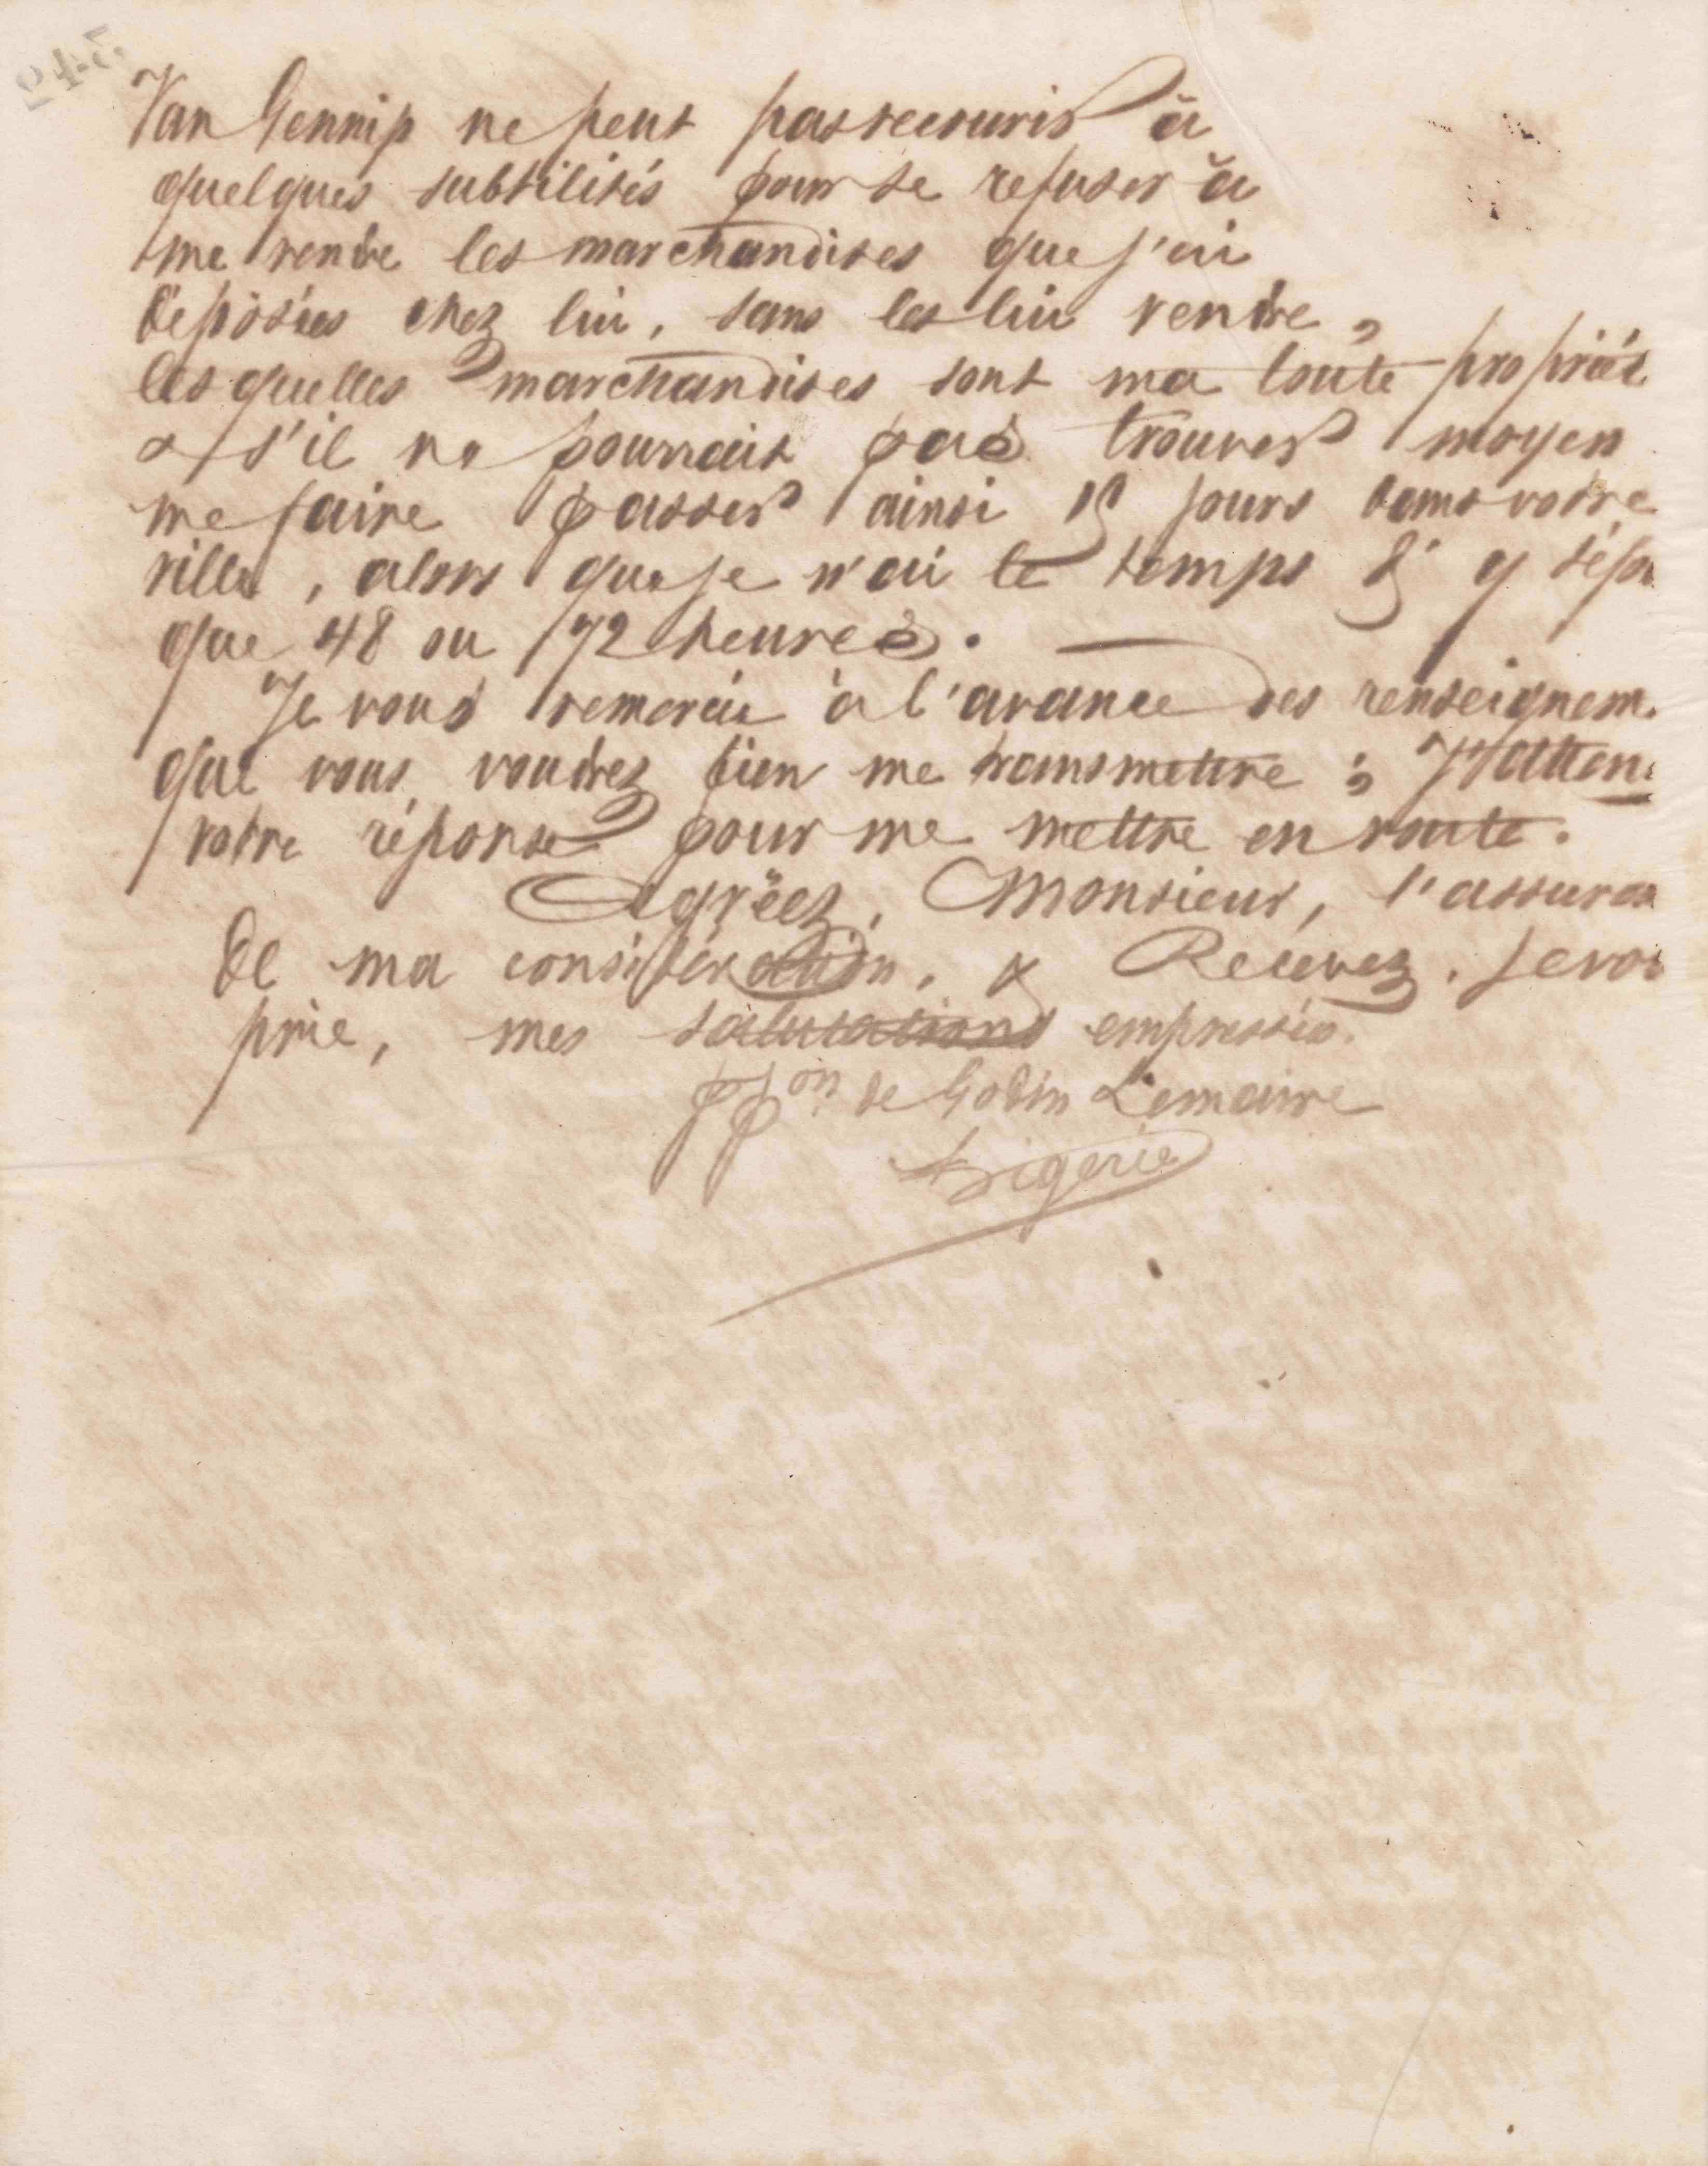 Van Gennip ne peut pas recourir à
quelques subtilités pour se refuser à
me rendre les marchandises que j'ai
déposées chez lui, sans les lui vendre,
lesquelles marchandises sont ma toute propriét
& s'il ne pourrait pas trouver moyen
me faire passer ainsi 15 jours dans votre
ville, alors que je n'ai le temps d'y dépen
que 48 ou 72 heures.
Je vous remercie à l'avance des renseignem.
que vous voudrez bien me transmettre ; J'atten
votre réponse pour me mettre en route.
Agréez, Monsieur, l'assuran
de ma considération, & Recevez, je vou
prie, mes salutations empressées.
ppon de Godin Lemaire